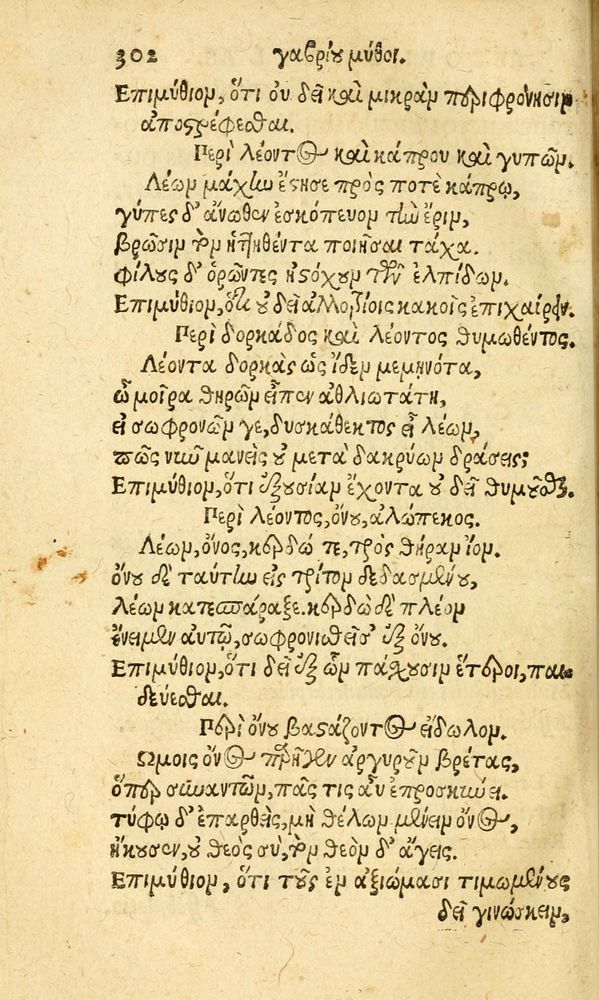 302 γαβρίου μύθοι.
Επιμύθιον, ὅτι ου δεῖ καὶ μικρὰν περιφρόνησιν
αποστρέφεσθαι.
Περὶ λέοντος καὶ κάπρου καὶ γυπῶν.
Λέων μάχην ἔστησε πρὸς ποτὲ κάπρῳ,
γύπες δ' ἄνωθεν ἐσκόπευον τὴν ἔριν,
βρῶσιν τὸν ἡττηθέντα ποιῆσαι τάχα.
φίλους δ' ὁρῶντες ηστόχουν τῶν ελπίδων.
Επιμύθιον, ὅτι οὐ δεῖ αλλοτρίοις κακοῖς επιχαίρειν.
Περὶ δορκάδος καὶ λέοντος θυμωθέντος.
Λέοντα δορκὰς ὡς ἴδεν μεμηνότα,
ὦ μοῖρα θηρῶν εἶπεν αθλιωτάτη,
εἰ σωφρονῶν γε, δυσκάθεκτος εἶ λέων,
πῶς νῦν μανεὶς οὐ μετὰ δακρύων δράσεις;
Επιμύθιον, ὅτι ἐξουσίαν ἔχοντα οὐ δεῖ θυμοῦσθαι.
Περὶ λέοντος, όνου, αλώπεκος.
Λέων, όνος, κερδώ τε, πρὸς θήραν ἴον.
όνου δὲ ταύτην εις τρίτον δεδασμένου,
λέων κατεσπάραξε. κερδὼ δὲ πλέον
ἔνειμεν αυτῷ, σωφρονισθεῖσ' ἐξ όνου.
Επιμύθιον, ὅτι δεῖ ἐξ ὧν πάσχουσιν ἕτεροι, παι
δεύεσθαι.
Περὶ όνου βαστάζοντος είδωλον.
Ωμοις όνος προῆγεν αργυροῦν βρέτας,
ὅπερ συναντῶν, πᾶς τις αὖ επροσκύνει.
τύφῳ δ' επαρθεὶς, μὴ θέλων μένειν όνος,
ήκουσεν, οὐ θεὸς σὺ, τὸν θεὸν δ' άγεις.
Επιμύθιον, ὅτι τοὺς εν αξιώμασι τιμωμένους
δεῖ γινώσκειν,